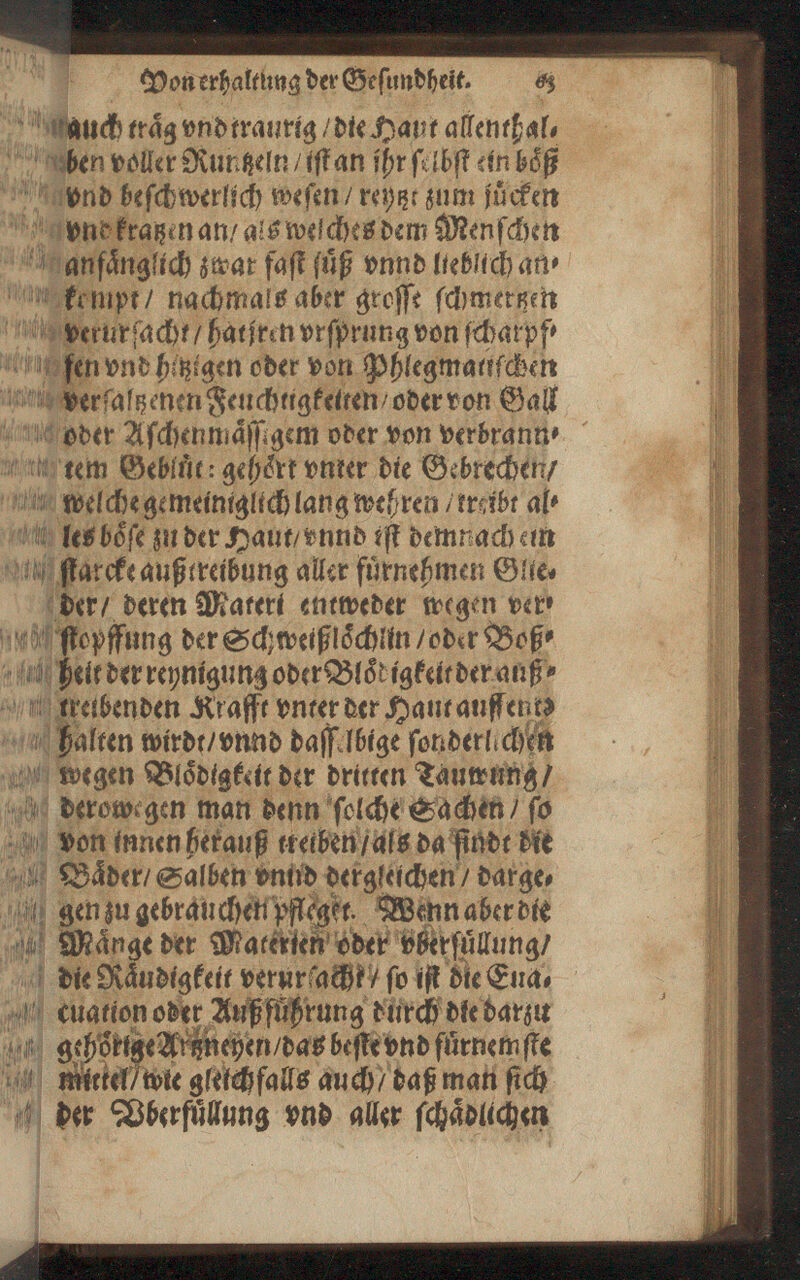 Von erhaltung der Geſundheit. 63
auch träg vnd traurig / die Haut allenthal-
ben voller Runtzeln / iſt an ihr ſelbſt ein böß
vnd beſchwerlich weſen / reytzt zum jücken
vnd kratzen an / als welches dem Menſchen
anfänglich zwar faſt ſüß vnnd lieblich an-
kompt / nachmals aber groſſe ſchmertzen
verurſacht / hat jren vrſprung von ſcharpf-
fen vnd hitzigen oder von Phlegmatiſchen
verſaltzenen Feuchtigkeiten / oder von Gall
oder Aſchenmäſſigem oder von verbrann-
tem Geblüt: gehört vnter die Gebrechen /
welche gemeiniglich lang wehren / treibt al-
les böſe zu der Haut / vnnd iſt demnach ein
ſtarcke außtreibung aller fürnehmen Glie-
der / deren Materi entweder wegen ver-
ſtopffung der Schweißlöchlin / oder Boß-
heit der reynigung oder Blödigkeit der auß-
treibenden Krafft vnter der Haut auffent-
halten wirdt / vnnd daſſelbige ſonderlichen
wegen Blödigkeit der dritten Tauwung /
derowegen man denn ſolche Sachen / ſo
von innen herauß treiben / als da ſindt die
Bäder / Salben vnnd dergleichen / darge-
gen zu gebrauchen pfleget. Wenn aber die
Mänge der Materien oder vberfüllung /
die Räudigkeit verurſacht / ſo iſt die Eua-
cuation oder Außführung durch die darzu
gehörige Artzneyen / das beſte vnd fürnemſte
mittel / wie gleichfalls auch / daß man ſich
der Vberfüllung vnd aller ſchädlichen